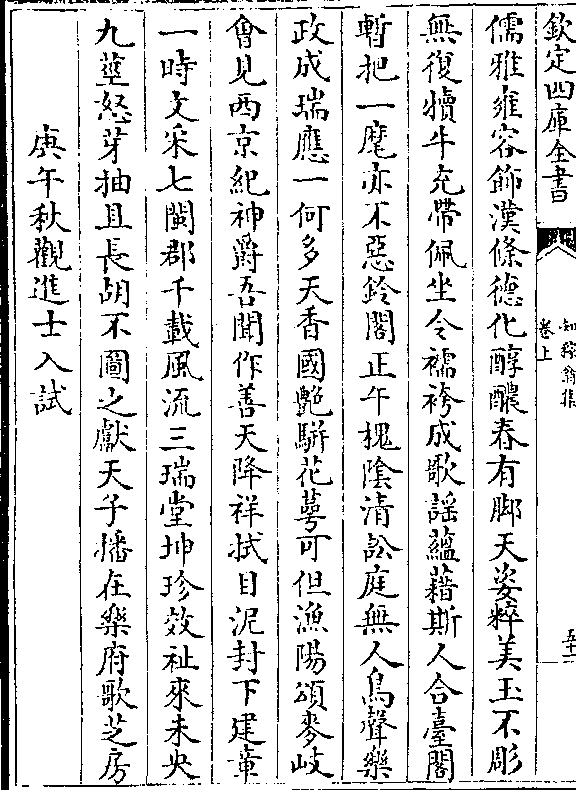 欽定四庫全書
知稼翁集
卷上
五十一
儒雅雍容飾漢條德化醇醲春有脚天姿粹美玉不彫
無復犢牛充帶佩坐令襦袴成歌謡蘊藉斯人合臺閣
暫把一麾亦不惡鈴閣正午槐隂清訟庭無人鳥聲樂
政成瑞應一何多天香國艶駢花萼可但漁陽頌麥岐
會見西京紀神爵吾聞作善天降祥拭目泥封下建章
一時文采七閩郡千載風流三瑞堂坤珍效祉來未央
九莖怒芽抽且長胡不圖之獻天子播在樂府歌芝房
庚午秋觀進士入試